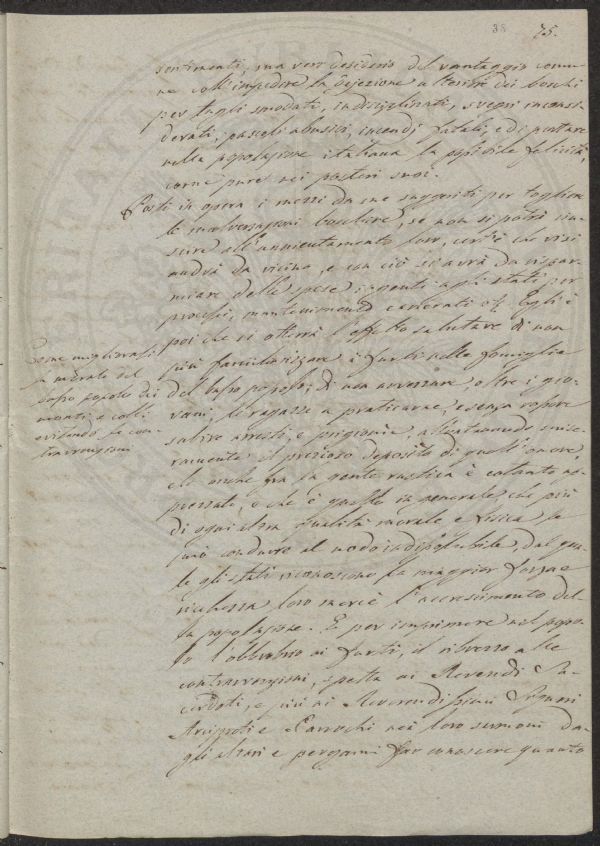 38 75.
sentimenti, ma vero desiderio del vantaggio comu-
ne coll'impedire la dejezione ulteriore dei boschi
per tagli smodati, indisciplinati, svegri inconsi-
derati, pascoli abusivi, incendj fatali, e di portare
nella popolazione italiana la possibile felicità,
come pure nei posteri suoi.
Posti in opera i mezzi da me suggeriti per togliere
le malversazioni boschive, se non si potrà riu-
scire all'annientamento loro, cert'è che vi si
andrà da vicino, e con ciò si avrà da rispar-
miare delle spese ingenti agli stati per
processi, mantenimento carcerati Egli è
poi che si otterrà l'effetto salutare di non
più famigliarizzare i furti nelle famiglie
Come migliorarsi
la morale del
basso popolo dei
monti e colli
evitando le con-
travvenzioni
del basso popolo, di non avvezzare oltre i gio-
vani, le ragazze a praticarne, e senza rossore
subire arresti, e prigionie, allontanando
il prezioso deposito di quell'onore,
che anche fra la gente rustica è cotanto ap-
prezzato, e che è quello in generale che più
di ogni altra qualità morale e fisica le
può condurre al nodo indissolubile, dal qua-
le gli stati riconoscono la maggior forza e
ricchezza loro mercè l'accrescimento del-
la popolazione. E per imprimere nel popo-
lo l'obbrobrio ai furti, il ribrezzo alle
contravvenzioni, spetta ai Reverendi Sa-
cerdoti, e più ai Reverendissimi Signori
Arcipreti e Parrochi nei loro sermoni da-
gli altari e pergami far conoscere quanto